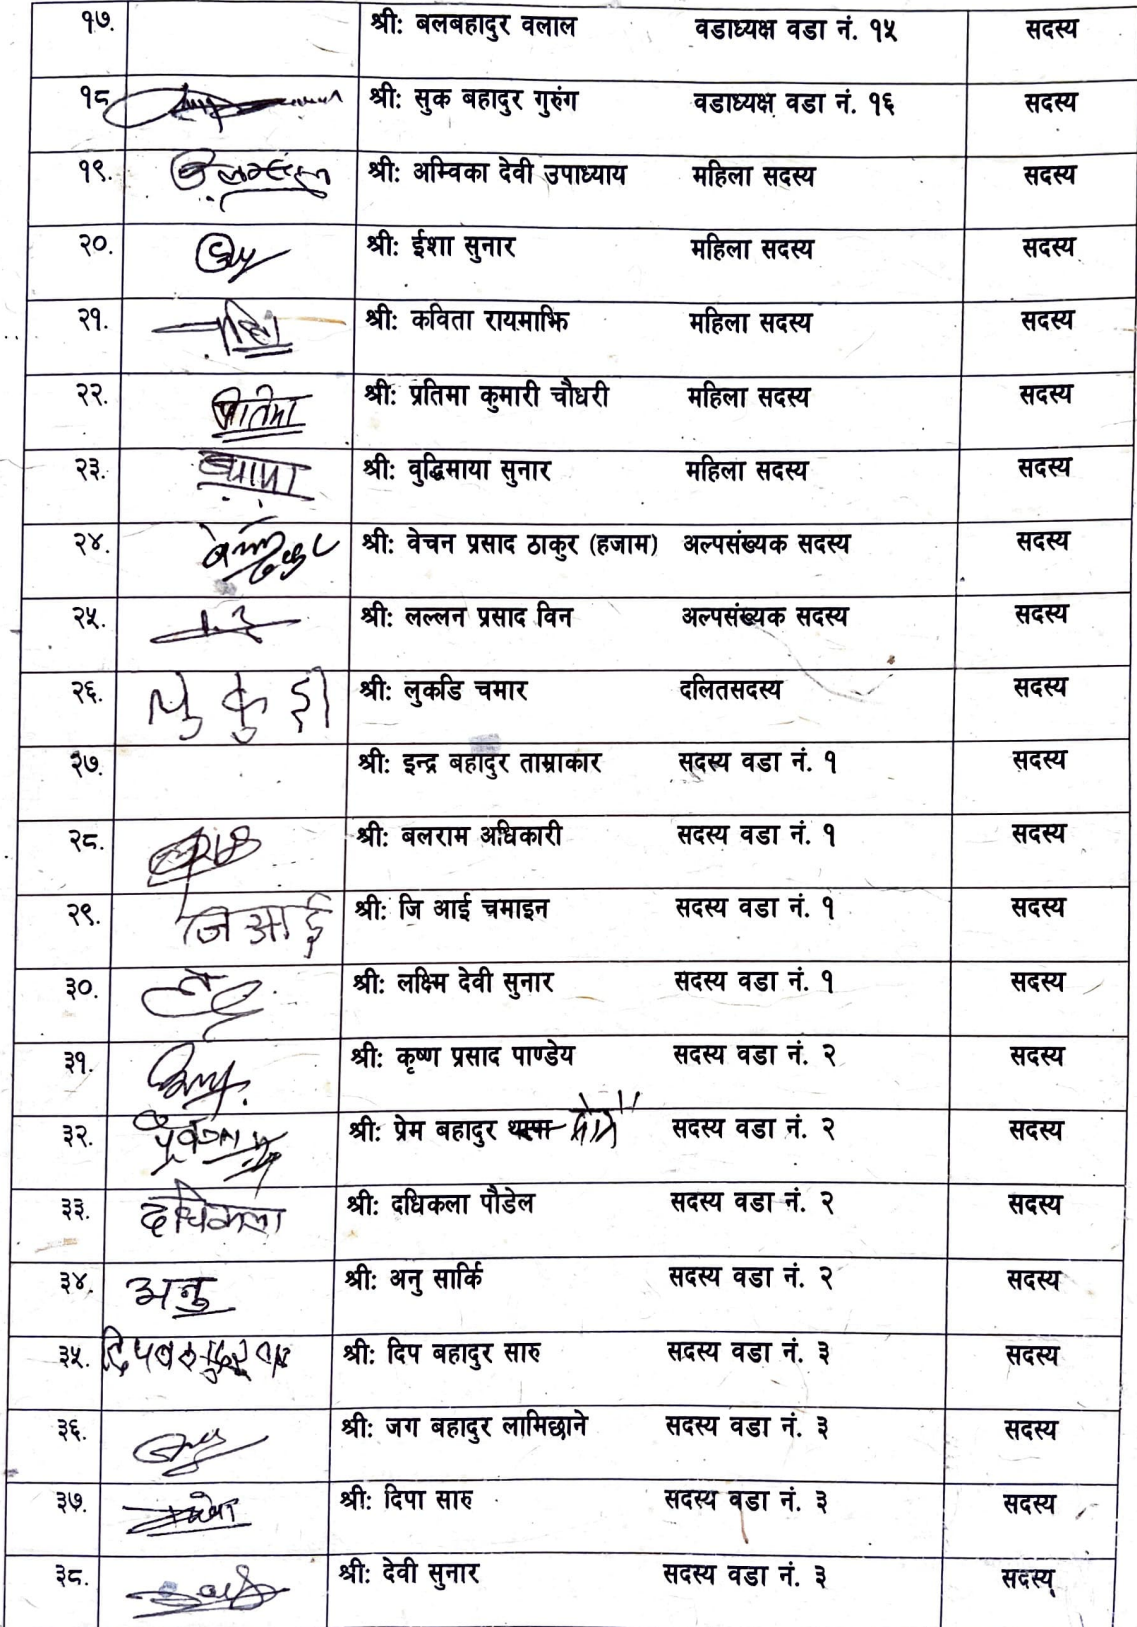 १७. श्री: बलबहादुर वलाल वडाध्यक्ष वडा नं. १५ सदस्य
१८ श्री: सुक बहादुर गुरुंग वडाध्यक्ष वडा नं. १६ सदस्य
१९. श्री: अम्विका देवी उपाध्याय महिला सदस्य सदस्य
२०. श्री: ईशा सुनार महिला सदस्य सदस्य
२१. श्री: कविता रायमाझि महिला सदस्य सदस्य
२२. प्रतिमा श्री: प्रतिमा कुमारी चौधरी महिला सदस्य सदस्य
२३. श्री: वुद्धिमाया सुनार महिला सदस्य सदस्य
२४. श्री: वेचन प्रसाद ठाकुर (हजाम) अल्पसंख्यक सदस्य सदस्य
२५. श्री: लल्लन प्रसाद विन अल्पसंख्यक सदस्य सदस्य
२६. श्री: लुकडि चमार दलितसदस्य सदस्य
२७. श्री: इन्द्र बहादुर ताम्राकार सदस्य वडा नं. १ सदस्य
२८. श्री: बलराम अधिकारी सदस्य वडा नं. १ सदस्य
२९. जि आई श्री: जि आई चमाइन सदस्य वडा नं. १ सदस्य
३०. श्री: लक्ष्मि देवी सुनार सदस्य वडा नं. १ सदस्य
३१. श्री: कृष्ण प्रसाद पाण्डेय सदस्य वडा नं. २ सदस्य
३२. श्री: प्रेम बहादुर थापा सदस्य वडा नं. २ सदस्य
३३. दधिकला श्री: दधिकला पौडेल सदस्य वडा नं. २ सदस्य
३४. अनु श्री: अनु सार्कि सदस्य वडा नं. २ सदस्य
३५. श्री: दिप बहादुर सारु सदस्य वडा नं. ३ सदस्य
३६. श्री: जग बहादुर लामिछाने सदस्य वडा नं. ३ सदस्य
३७. श्री: दिपा सारु सदस्य वडा नं. ३ सदस्य
३८. श्री: देवी सुनार सदस्य वडा नं. ३ सदस्य